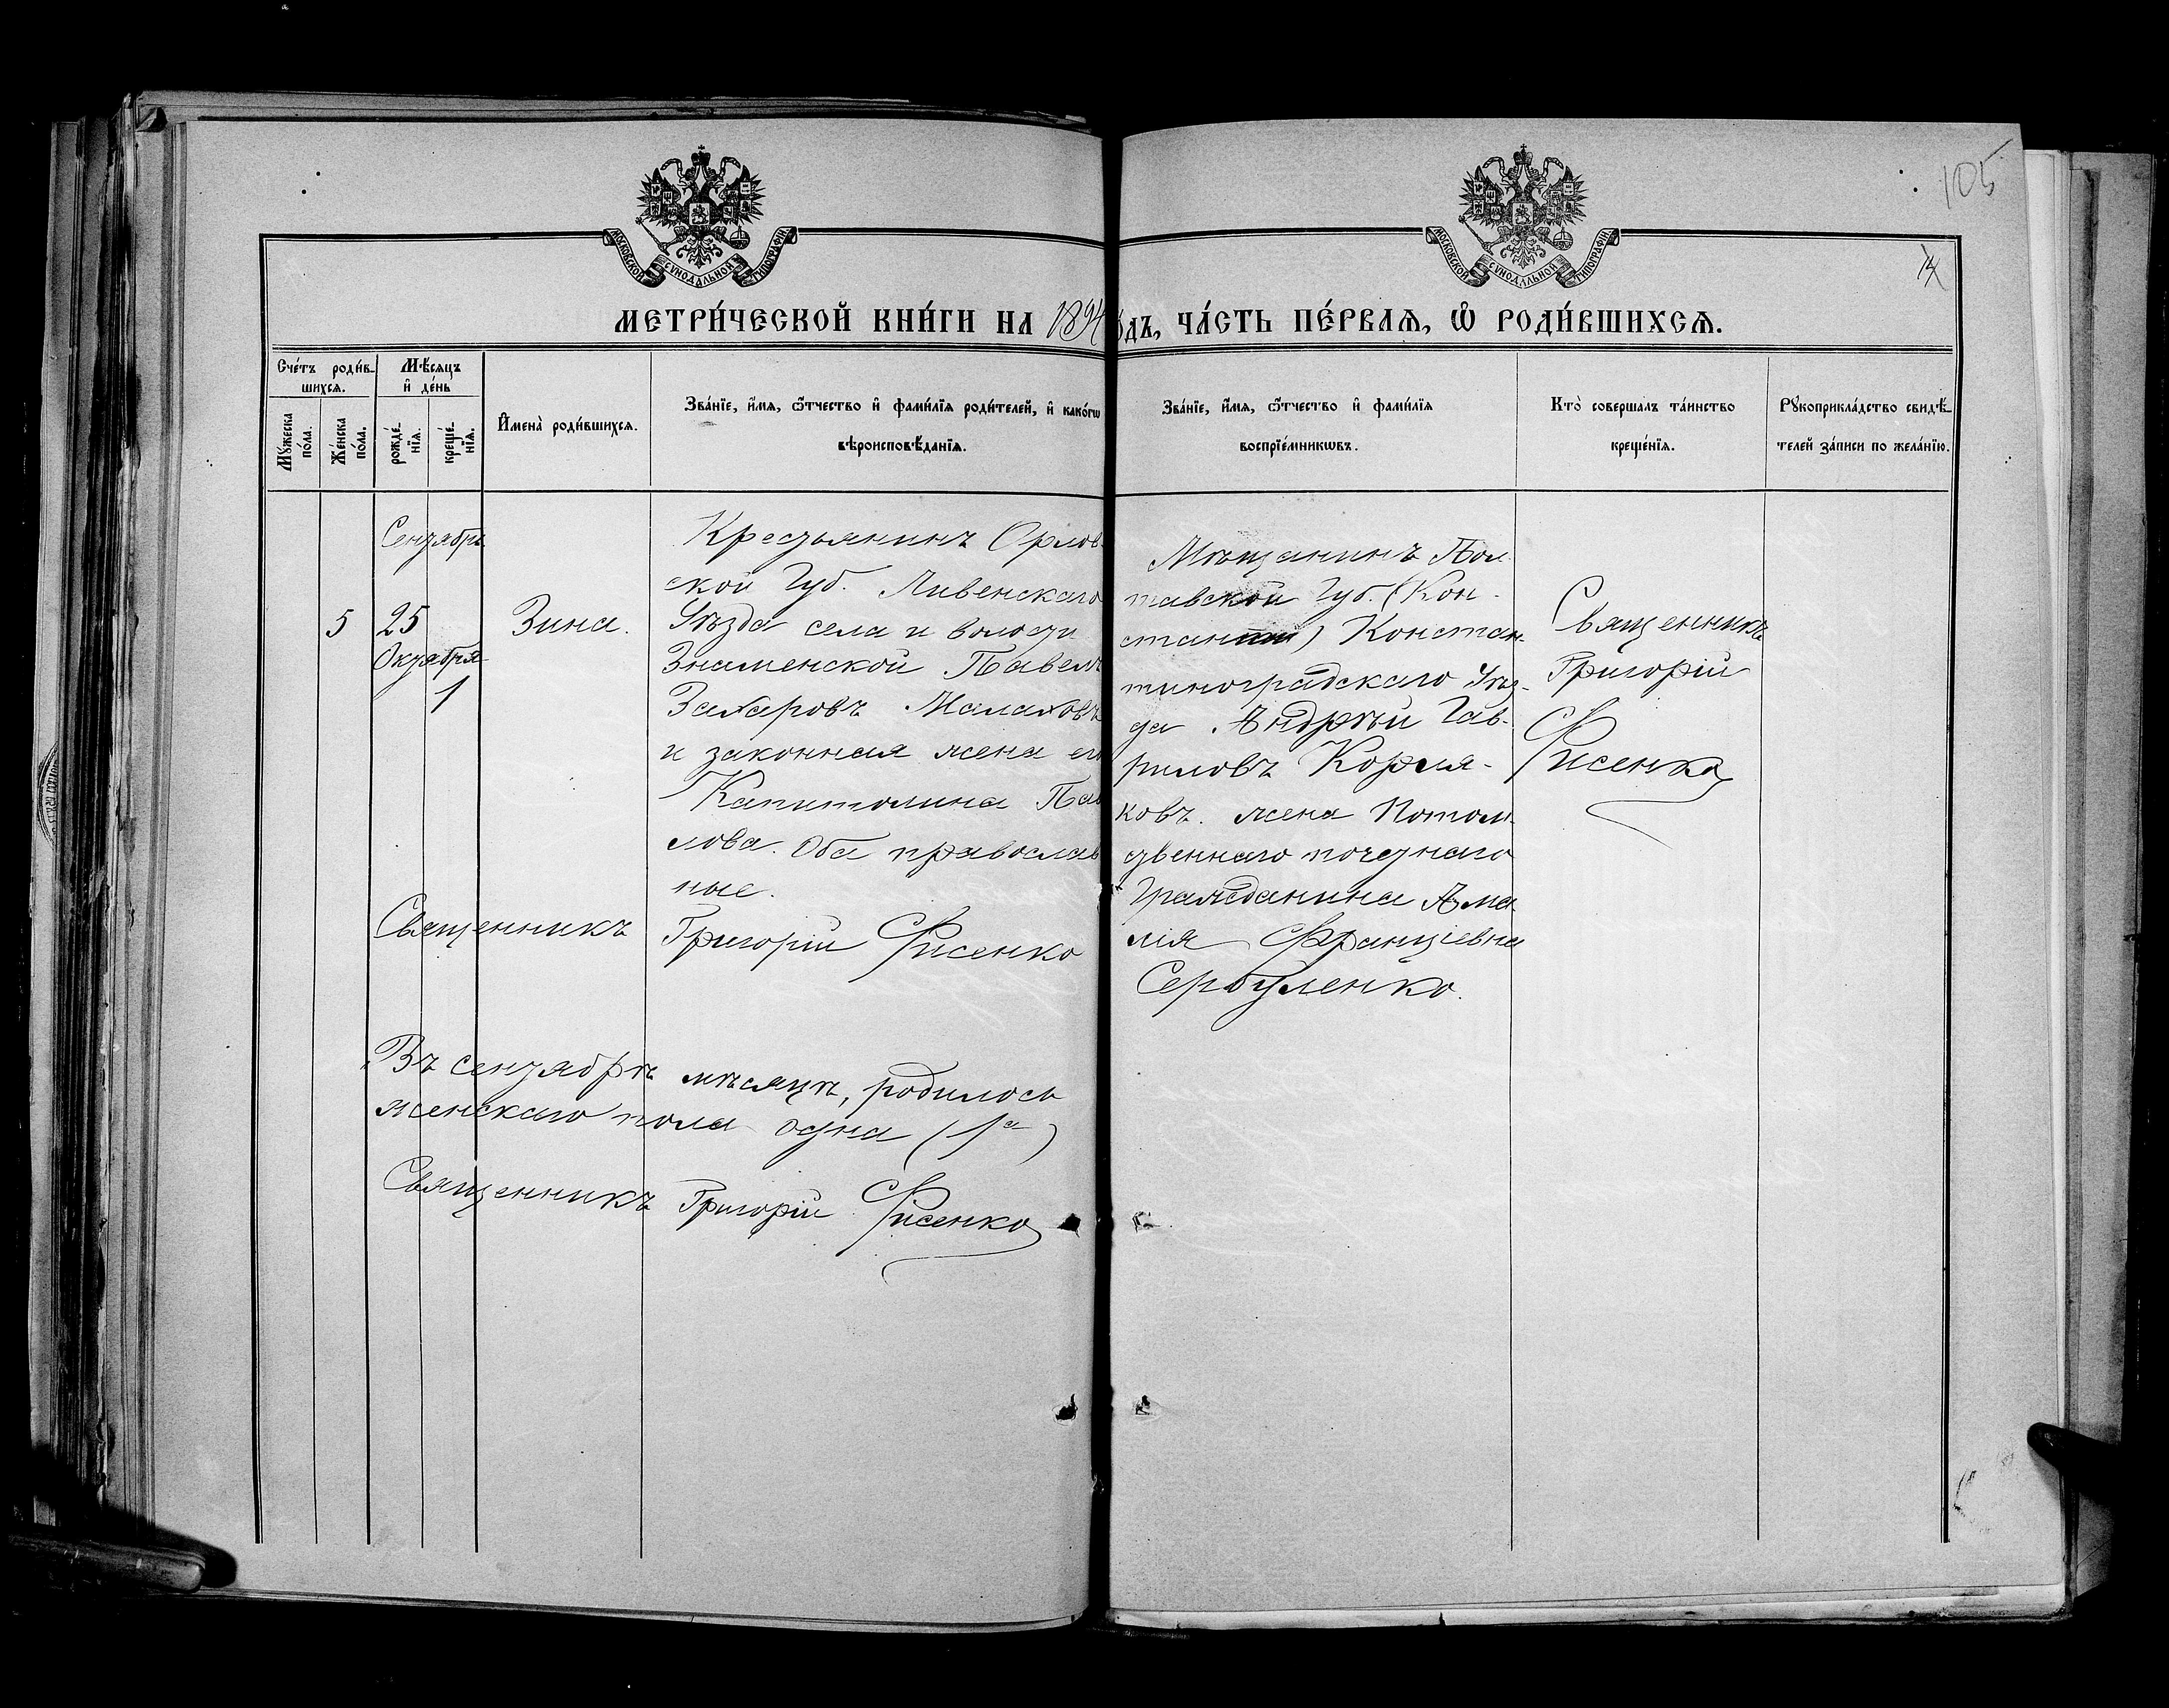 105
14
МОСКОВСКОЙ СУНОДАЛЬНОЙ ТИПОГРАФІИ
МОСКОВСКОЙ СУНОДАЛЬНОЙ ТИПОГРАФІИ
МЕТРИ́ЧЕСКОЙ КНИ́ГИ НА 1894
ОДЪ, ЧА́СТЬ ПЕ́РВАЯ, Ѽ РОДИ́ВШИХСЯ.
Сче́тъ роди́в-
шихся.
Мѣ́сяцъ
и҆ де́нь
Мꙋ́жеска
по́ла.
Же́нска
по́ла.
рожде́-
нїя.
креще́-
нїя.
И҆мена̀ роди́вшихся.
Зва́нїе, и҆́мя, ѻ҆́тчество и҆ фами́лїя роди́телей, и҆ како́гѡ
вѣроисповѣ́данїя.
Зва́нїе, и҆́мя, ѻ҆́тчество и҆ фами́лїя
воспрїе́мникѡвъ.
Кто̀ соверша́лъ та́инство
креще́нїя.
Рꙋкоприкла́дство свидѣ́-
телей за́писи по жела́нїю.
Сентябрь
5 25
Октября
1
Зина.
Крестьянинъ Орлов-
ской Губ. Ливенскаго
Уѣзда села и волости
Знаменской Павелъ
Захаровъ Малаховъ
и законная жена его
Капитолина Пав
лова. Оба православ
ные.
Священникъ Григорій Фисенко
Мѣщанинъ Пол-
тавской Губ. (Кон-
стант) Констан-
тиноградскаго Уѣз-
да Андрей Гав-
риловъ Корля-
ковъ. жена Потом-
ственнаго почетнаго
Гражданина Ама-
лія Францієвна
Сербуленко.
Священникъ
Григорій
Фисенко
Въ сентябрѣ мѣсяцѣ, родилось
женскаго пола одна (1а)
Священникъ Григорій Фисенко